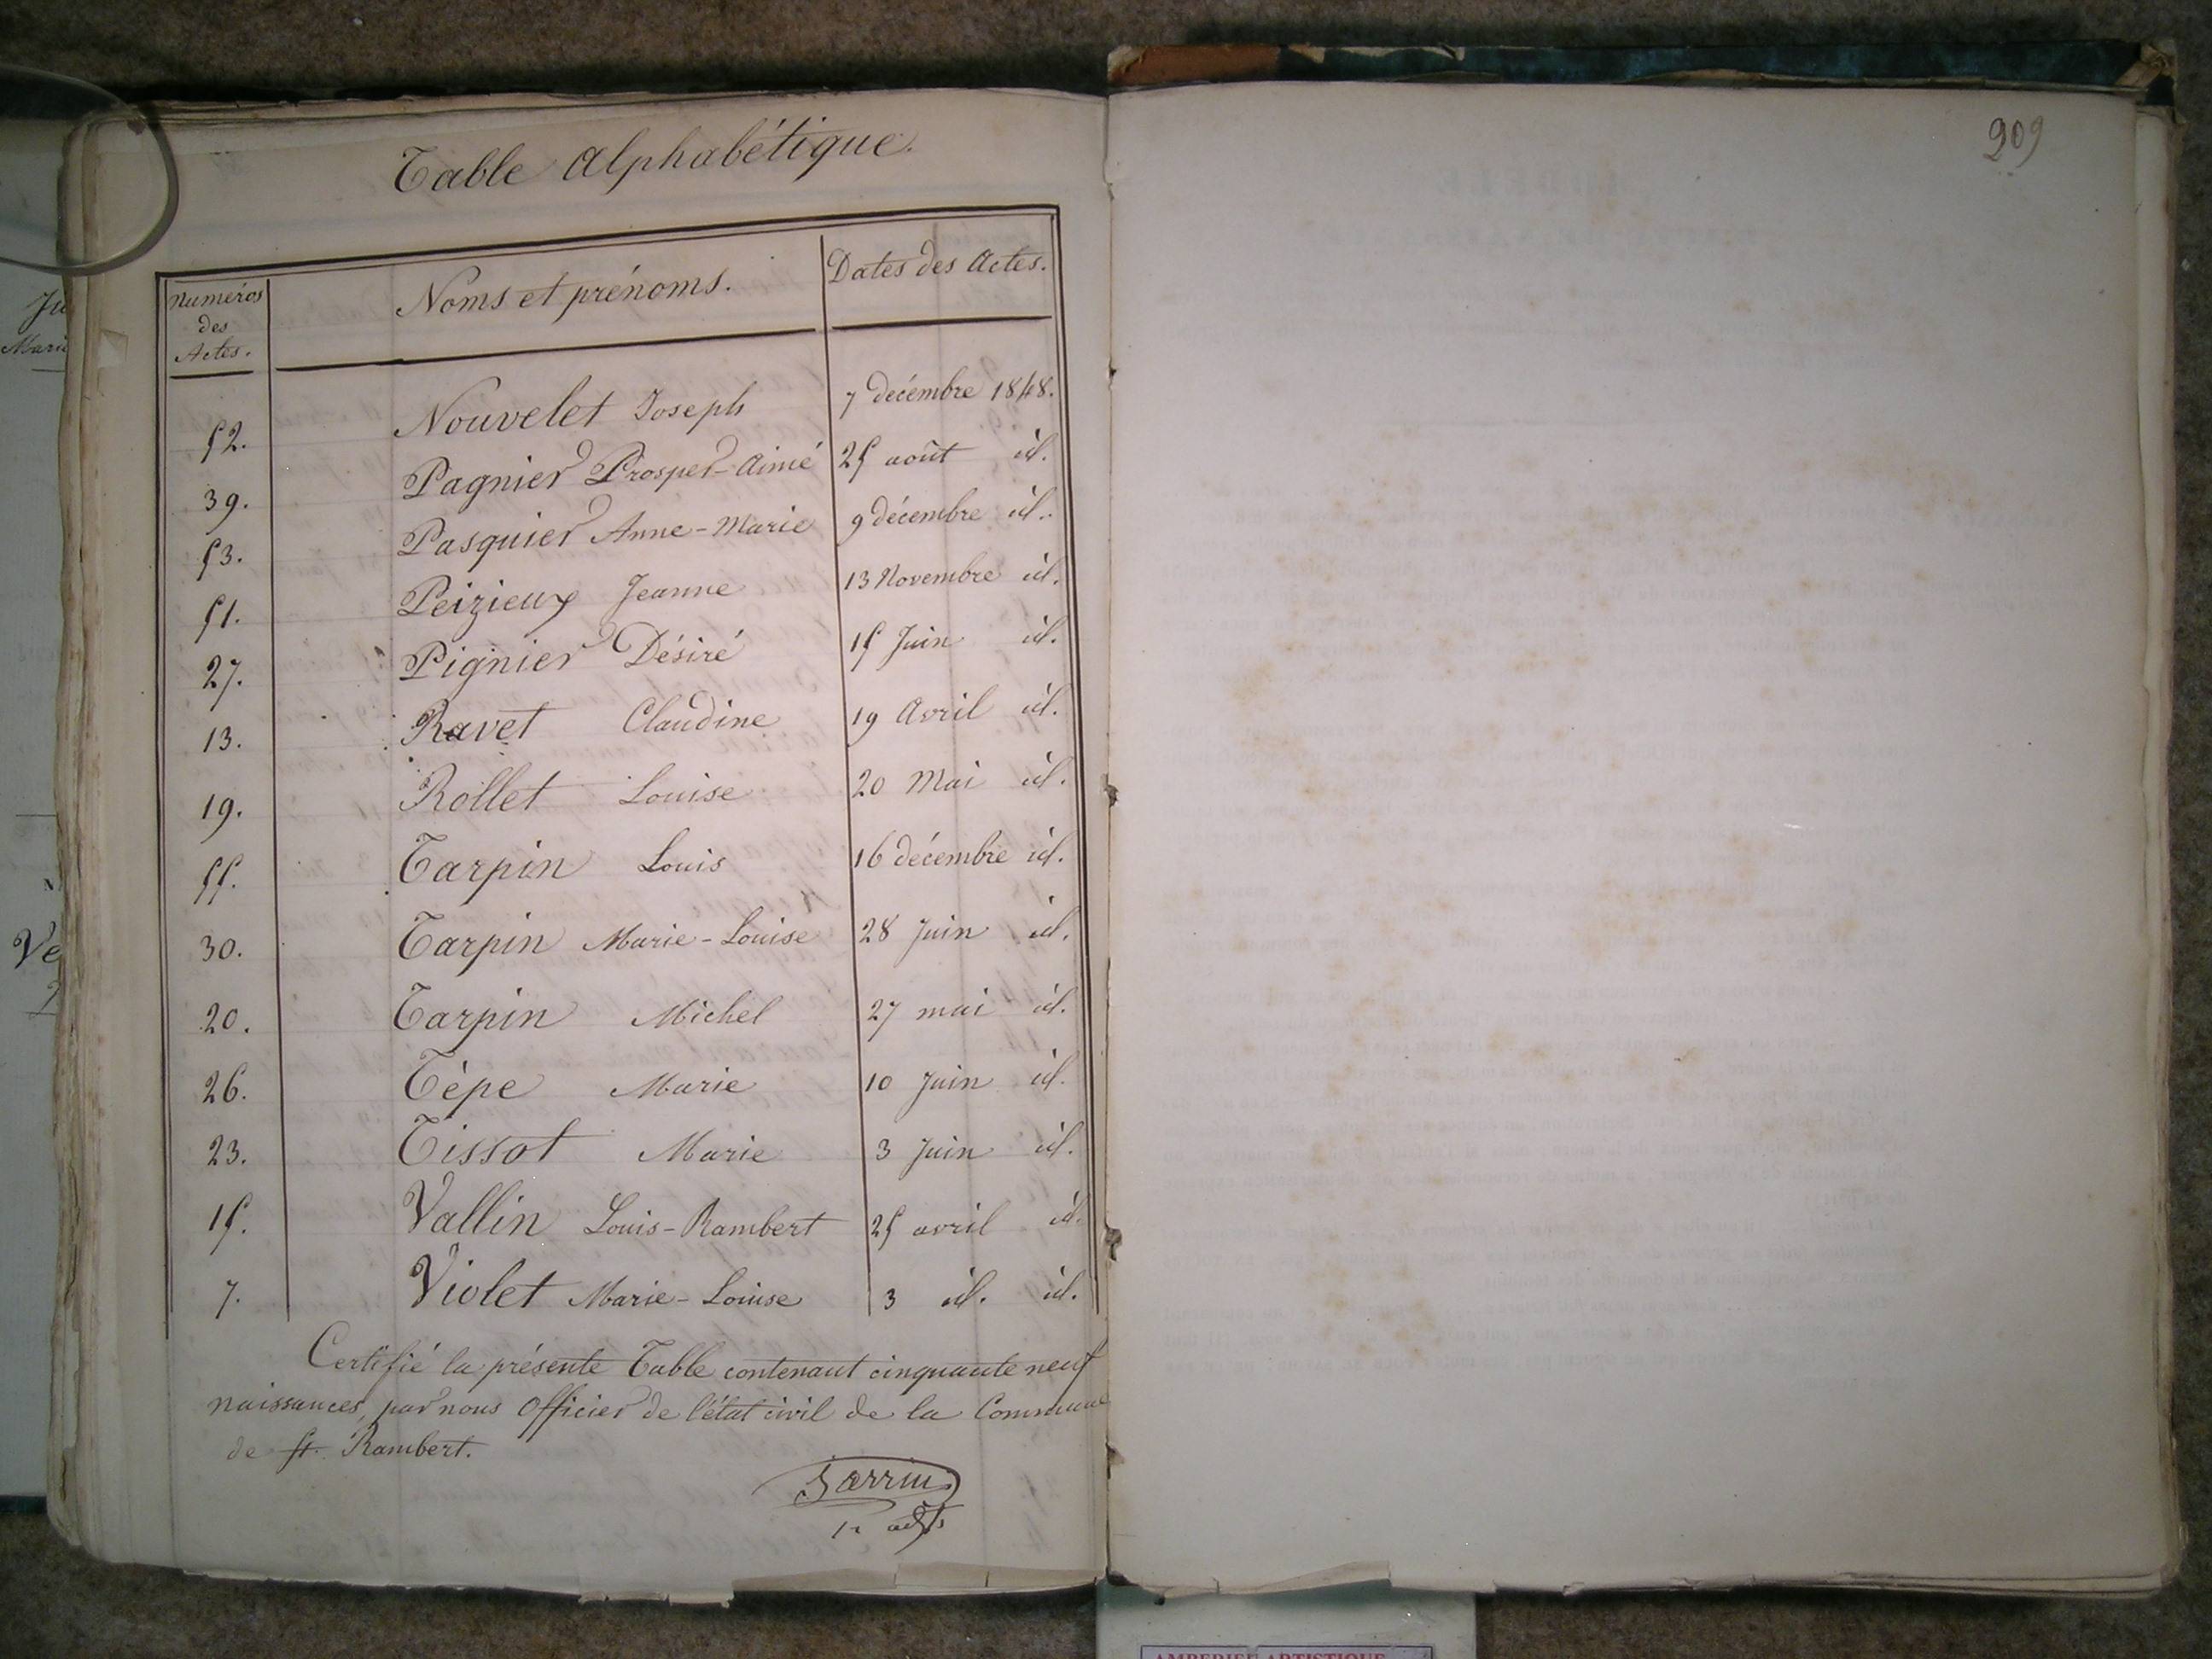 Table Alphabétique.
Numéros des Actes. Noms et prénoms. Dates des Actes.
52. Nouvelet Joseph 7 décembre 1848.
39. Pagnier Prosper-Aimé 25 août id.
53. Pasquier Anne-Marie 9 décembre id.
51. Peizieux Jeanne 13 Novembre id.
27. Pignier Désiré 15 Juin id.
13. Ravet Claudine 19 Avril id.
19. Rollet Louise 20 Mai id.
55. Tarpin Louis 16 décembre id.
30. Tarpin Marie-Louise 28 Juin id.
20. Tarpin Michel 27 mai id.
26. Tépe Marie 10 Juin id.
23. Tissot Marie 3 Juin id.
15. Vallin Louis-Rambert 25 avril id.
7. Violet Marie-Louise 3 id. id.
Certifié la présente Table contenant cinquante neuf
naissances, par nous Officier de l'état civil de la Commune
de St. Rambert.
209
AMBERIEU ARTISTIQUE